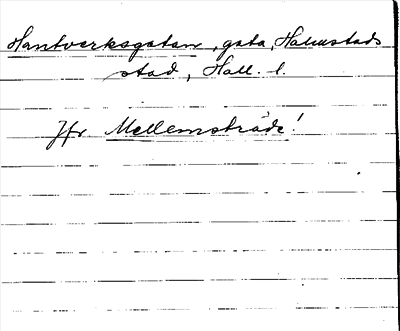 Hantverksgatan, gata, Halmstads
stad, Hall. l.
Jfr Mellemstråde!